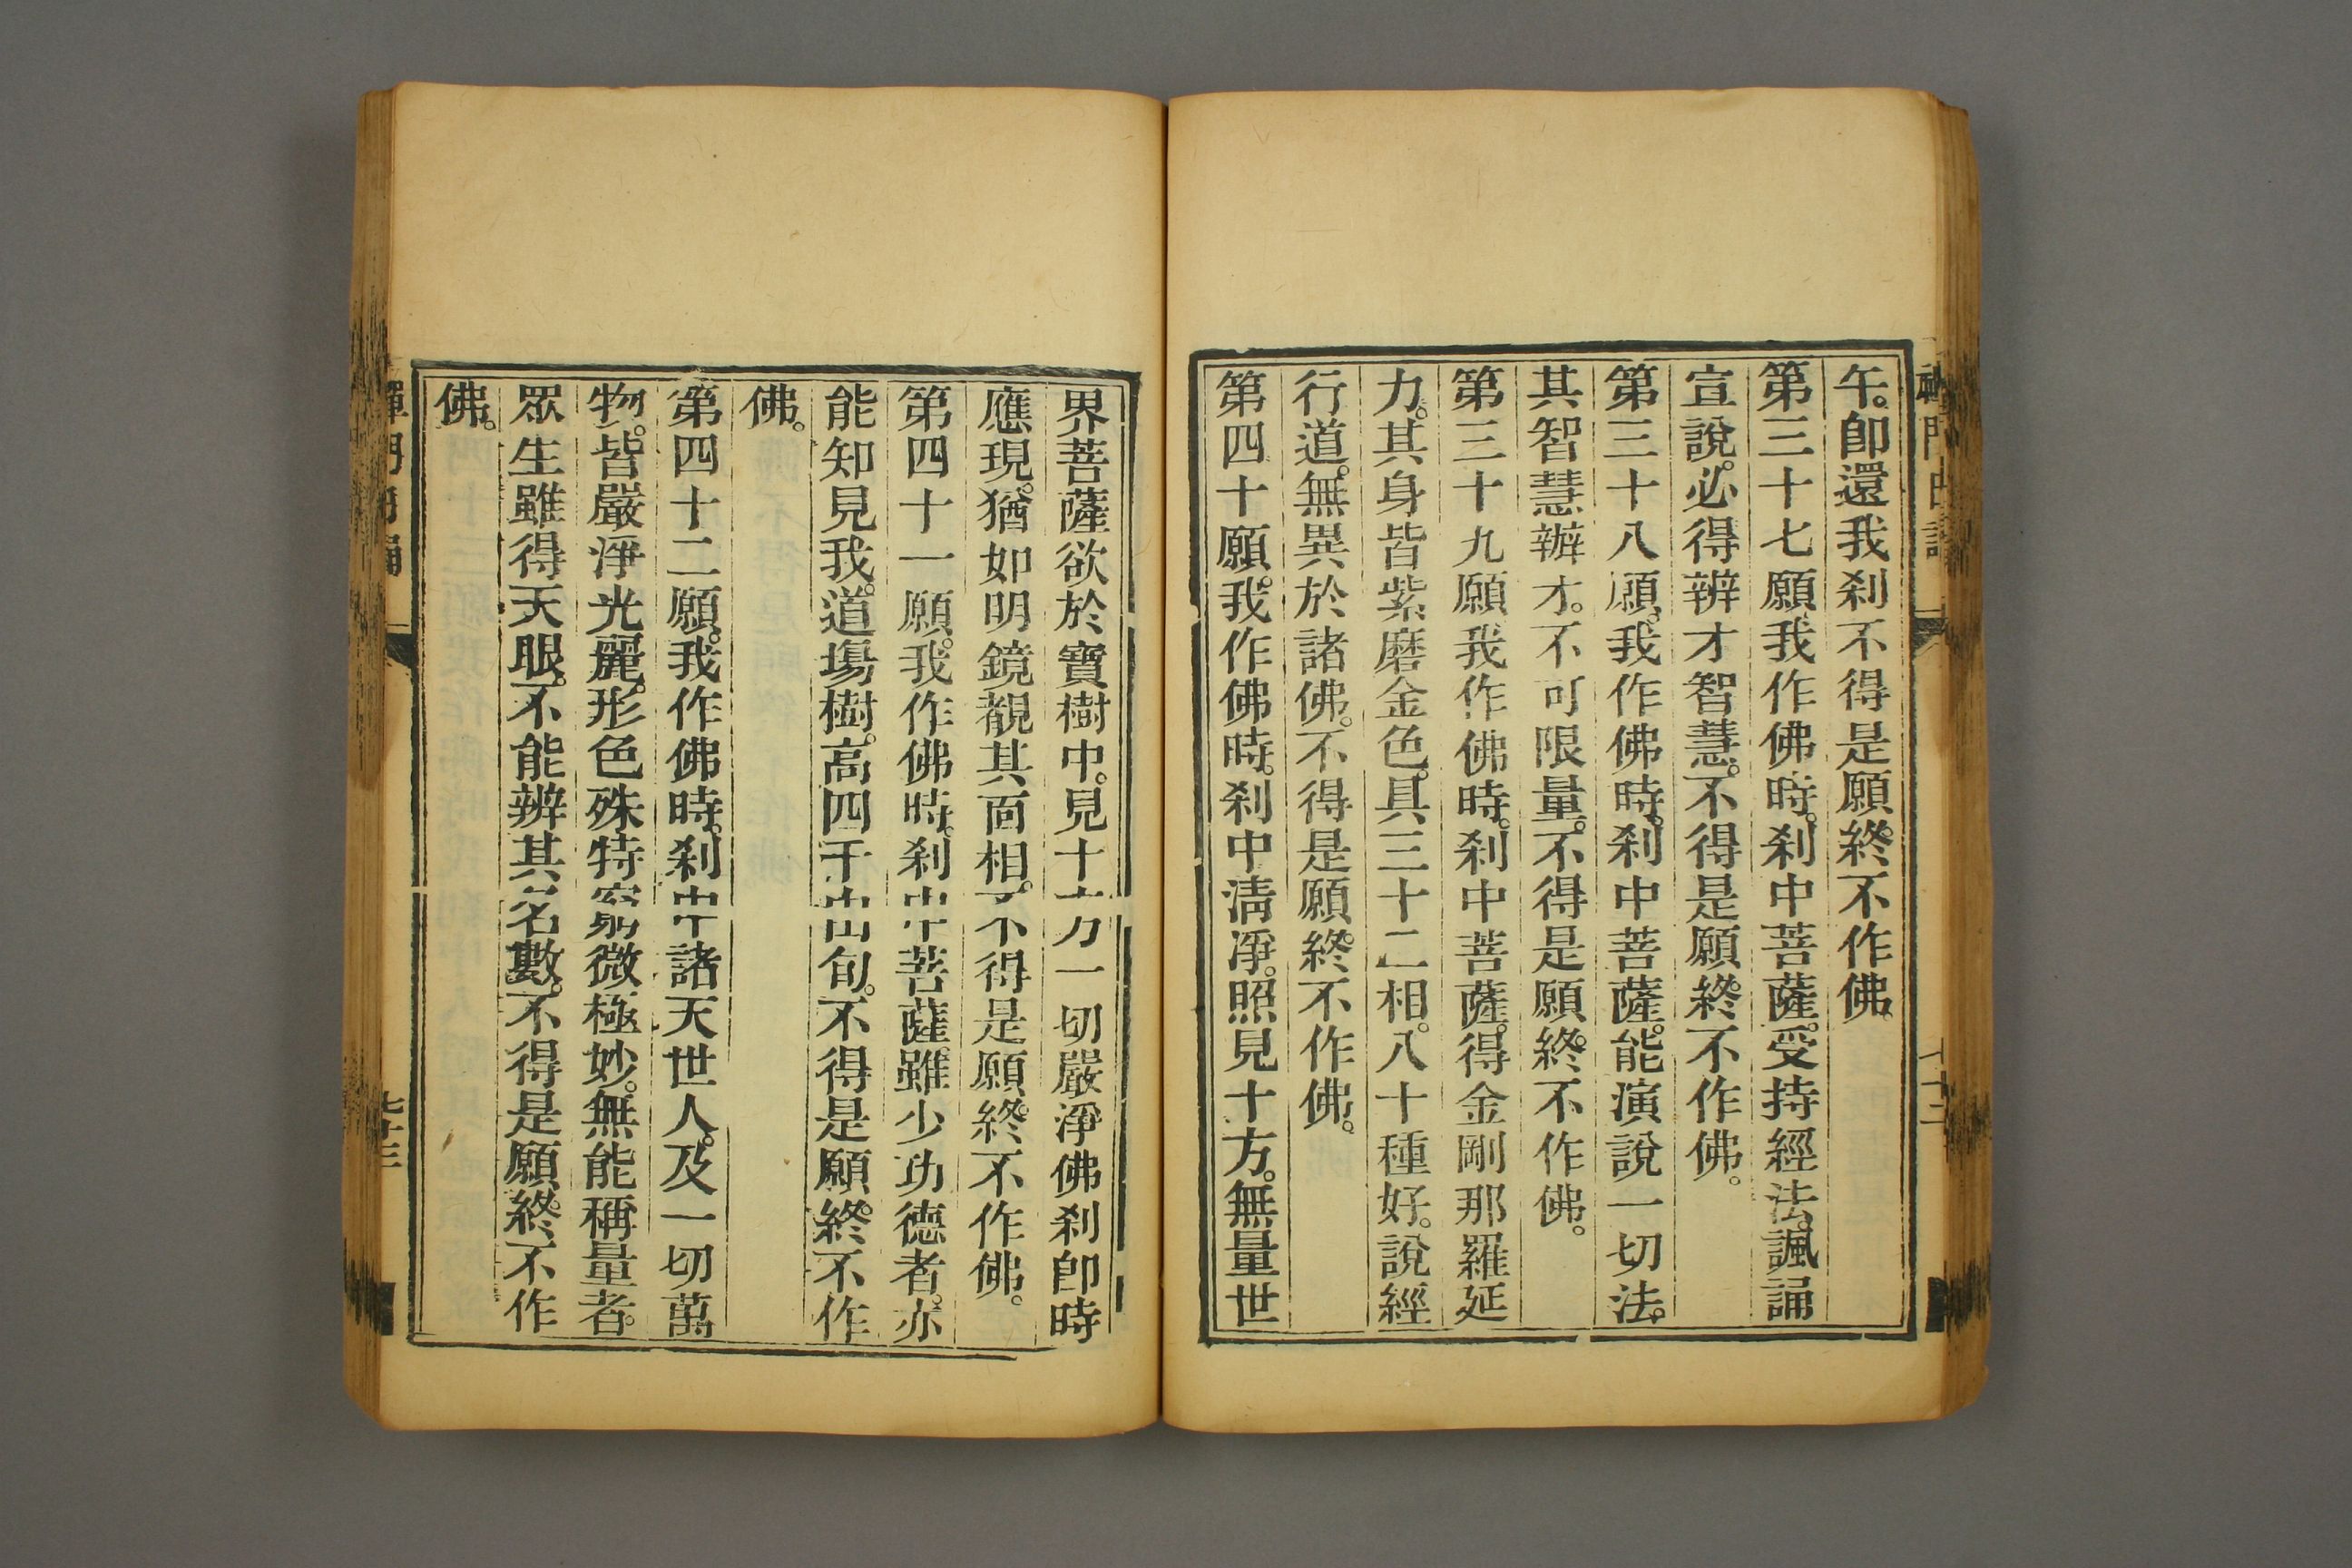 午。即還我刹不得是願。終不作佛。
第三十七願。我作佛時。刹中菩薩。受持經法。諷誦
宣說。必得辨才智慧。不得是願。終不作佛。
第三十八願。我作佛時。刹中菩薩。能演說一切法。
其智慧辨才。不可限量。不得是願。終不作佛。
第三十九願。我作佛時。刹中菩薩。得金剛那羅延
力。其身皆紫磨金色。具三十二相。八十種好。說經
行道。無異於諸佛。不得是願。終不作佛。
第四十願。我作佛時。刹中淸淨。照見十方。無量世
界菩薩欲於寶樹中。見十方一切嚴淨佛刹卽時
應現。猶如明鏡覩其面相。不得是願。終不作佛。
第四十一願。我作佛時。刹中菩薩。雖少功德者。亦
能知見我。道場樹。高四千由旬。不得是願。終不作
佛。
第四十二願。我作佛時。刹中諸天世人。及一切萬
物。皆嚴淨光麗。形色殊特。窮微極妙。無能稱量者。
眾生雖得天眼。不能辨其名數。不得是願。終不作
佛。
七十三